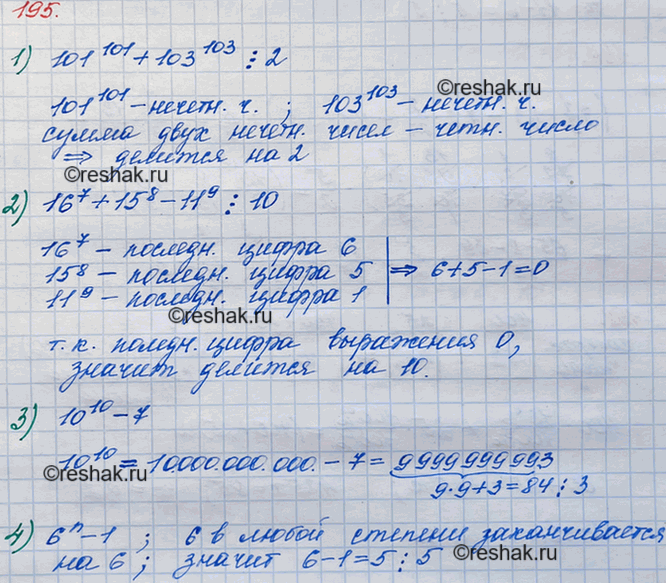 195.
1) 101^101 + 103^103 ⋮ 2
©reshak.ru
101^101 - нечетн. ч. ; 103^103 - нечетн. ч.
сумма двух нечетн. чисел - четн. число
⇒ делится на 2
©reshak.ru
2) 16^7 + 15^8 - 11^9 ⋮ 10
16^7 - последн. цифра 6
15^8 - последн. цифра 5 ⇒ 6+5-1=0
11^9 - последн. цифра 1
©reshak.ru
т.к. поледн. цифра выражения 0,
значит делится на 10.
3) 10^10 - 7
10^10 = 10000.000.000. - 7 = 9999999993
©reshak.ru
9·9+3=84 ⋮ 3
©reshak.ru
4) 6^n - 1 ; 6 в любой степени заканчивается
на 6 ; значит 6-1=5 ⋮ 5